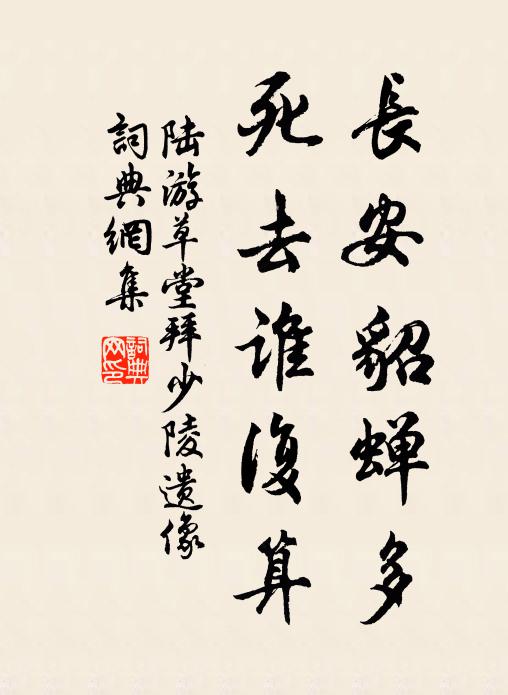 長安貂蝉多
死去誰復算
陆游草堂拜少陵遺像
詞典網集
詞典網印